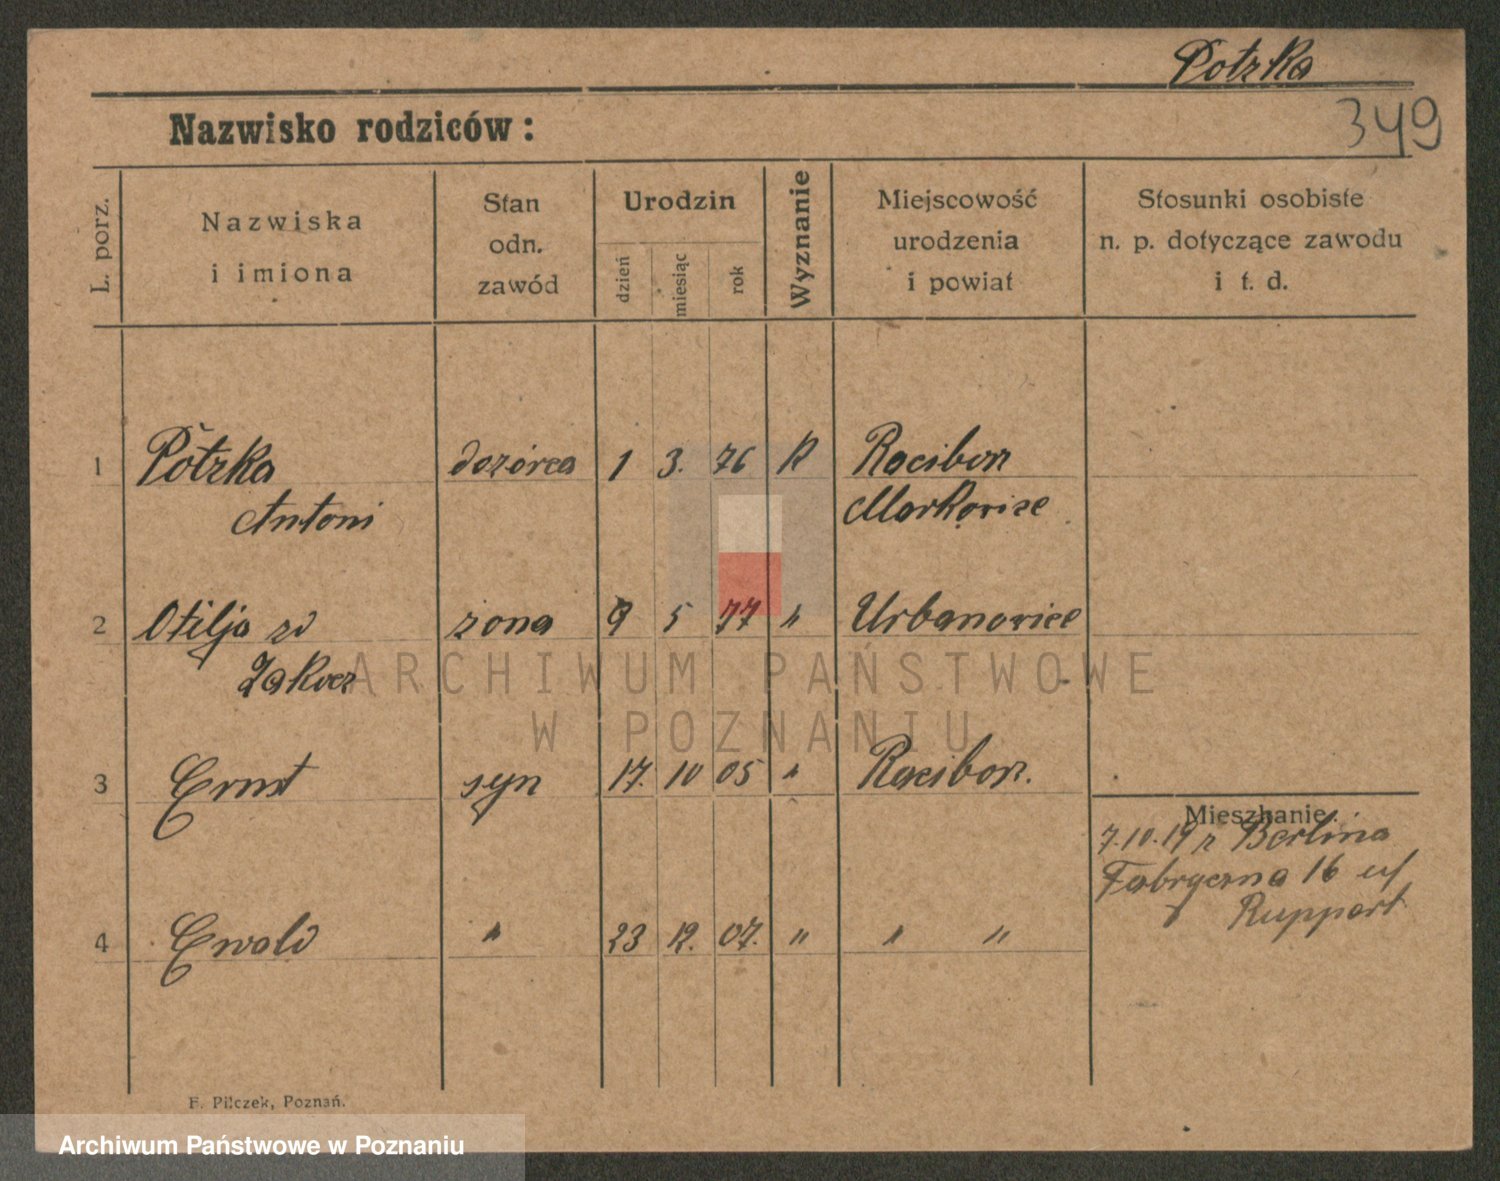 Potzka
349
Nazwisko rodziców:
L. porz.
Nazwiska
i imiona
Stan
odn.
zawód
Urodzin
dzień
miesiąc
rok
Wyznanie
Miejscowość
urodzenia
i powiat
Stosunki osobiste
n. p. dotyczące zawodu
i t. d.
1 Pŏtzka dozórca 1 3. 76 K Racibórz
Antoni Markowice
2 Otilja zd żona 9 5 77 " Urbanowice
3 Ernst syn 17. 10 05 " Racibórz.
Mieszkanie:
7.10.19 z Berlina
Fabryczna 16 u/
Ruppert
4 Ewald " 23 12. 07. " " "
F. Pilczek, Poznań.
ARCHIWUM PAŃSTWOWE
W POZNANIU
Archiwum Państwowe w Poznaniu